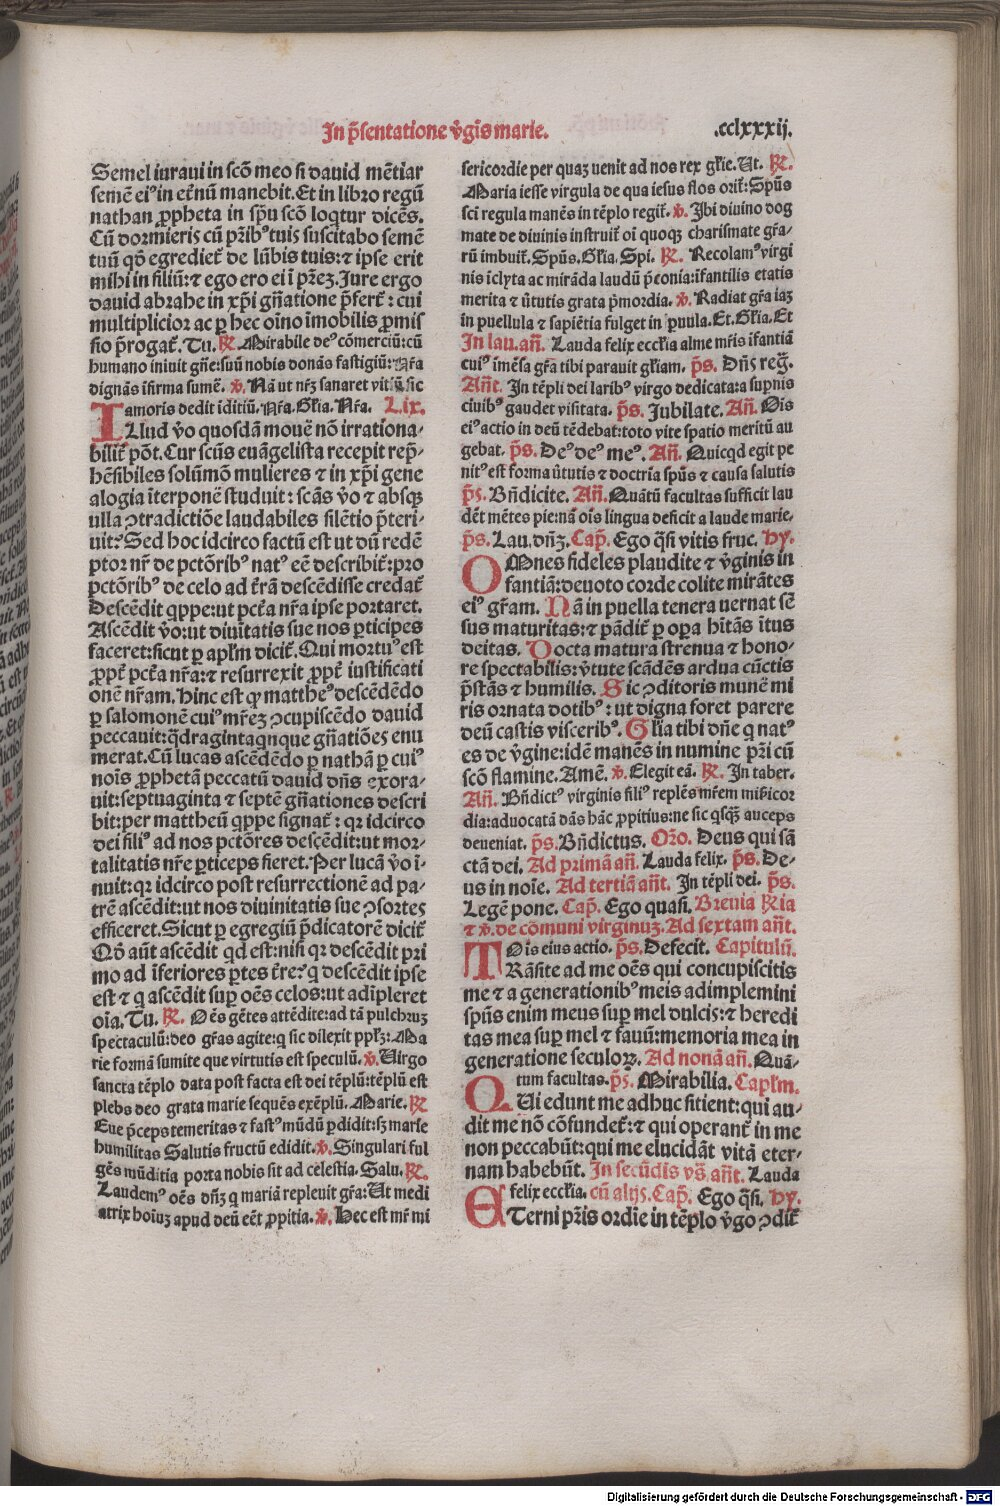 In p̄sentatione v̄gis marie.
.cclxxxij.
Semel iuraui in scō meo si dauid mētiar
semē ei⁹ in et̄nū manebit. Et in libro regū
nathan ꝓpheta in sp̄u scō loqtur dicēs.
Cū dormieris cū pr̄ib⁹ tuis suscitabo semē
tuū qd̄ egrediet̄ de lūbis tuis: ⁊ ipse erit
mihi in filiū: ⁊ ego ero ei ī pr̄ez. Jure ergo
dauid abrahe in xp̄i gn̄atione p̄fert̄: cui
multiplicior ac ꝑ hec oīno īmobilis ꝓmis
sio p̄rogat̄. Tu. ℟. Mirabile de⁹ cōmerciū: cū
humano iniuit gn̄e: suū nobis donās fastigiū: Nr̄a
dignās īfirma sumē. ℣. Nā ut nr̄ꝫ sanaret vitiū sic
amoris dedit īditiū. Nr̄a. Gl̄ia. Nr̄a. L. ix.
ILlud v̄o quosdā mouē nō irrationa-
bilit̄ pōt. Cur scūs euāgelista recepit rep̄-
hēsibiles solūmō mulieres ⁊ in xp̄i gene
alogia īterponē studuit: scās v̄o ⁊ absqꝫ
ulla ꝯtradictiōe laudabiles silētio p̄teri-
uit: Sed hoc idcirco factū est ut dū redē
ptor nr̄ de pctōrib⁹ nat⁹ eē describit̄: pro
pctōrib⁹ de celo ad t̄rā descēdisse credat̄
Descēdit qppe: ut pctā nr̄a ipse portaret.
Ascēdit v̄o: ut diuītatis sue nos ꝑticipes
faceret: sicut ꝑ apl̄m dicit̄. Qui mortu⁹ est
ꝓpt̄ pctā nr̄a: ⁊ resurrexit ꝓpt̄ iustificati
onē nr̄am. Hinc est ꝙ matthe⁹ descēdēdo
ꝑ salomonē cui⁹ mr̄eꝫ ꝯcupiscēdo dauid
peccauit: qdragintaqnque gn̄atiōes enu
merat. Cū lucas ascēdēdo ꝑ nathā ꝑ cui⁹
noīs ꝓphetā peccatū dauid dn̄s exora-
uit: septuaginta ⁊ septē gn̄ationes descri
bit: per mattheū qppe signat̄: qꝛ idcirco
dei fili⁹ ad nos pctōres descēdit: ut mor-
talitatis nr̄e ꝑticeps fieret. Per lucā v̄o ī-
nuit: qꝛ idcirco post resurrectionē ad pa-
trē ascēdit: ut nos diuinitatis sue ꝯsortes
efficeret. Sicut ꝑ egregiū p̄dicatorē dicit̄
Qd̄ aūt ascēdit qd est: nisi qꝛ descēdit pri
mo ad īferiores ꝑtes t̄re: q descēdit ipse
est ⁊ q ascēdit suꝑ oēs celos: ut adīpleret
oīa. Tu. ℟. Oēs gētes attēdite: ad tā pulchruꝫ
spectaculū: deo gr̄as agite: q sic dilexit ppl̄ꝫ: Ma
rie formā sumite que virtutis est speculū. ℣. Virgo
sancta tēplo data post facta est dei tēplū: tēplū est
plebs deo grata marie sequēs exēplū. Marie. ℟
Eue p̄ceps temeritas ⁊ fast⁹ mūdū ꝑdidit: sꝫ marie
humilitas Salutis fructū edidit. ℣. Singulari ful
gēs mūditia porta nobis sit ad celestia. Salu. ℟.
Laudem⁹ oēs dn̄ꝫ q mariā repleuit gr̄a: Ut medi
atrix hoīuꝫ apud deū eēt ꝓpitia. ℣. Hec est mr̄ mi
sericordie per quaꝫ uenit ad nos rex gl̄ie. Ut. ℟.
Maria iesse virgula de qua iesus flos orit̄: Spūs
sci regula manēs in tēplo regit̄. ℣. Ibi diuino dog
mate de diuinis instruit̄ oī quoqꝫ charismate gr̄a-
rū imbuit̄. Spūs. Gl̄ia. Spi. ℟. Recolam⁹ virgi
nis īclyta ac mirāda laudū p̄conia: īfantilis etatis
merita ⁊ v̄tutis grata p̄mordia. ℣. Radiat gr̄a iaꝫ
in puellula ⁊ sapiētia fulget in puula. Et. Gl̄ia. Et
In lau. an̄. Lauda felix eccl̄ia alme mr̄is īfantiā
cui⁹ īmēsa gr̄a tibi parauit gl̄iam. p̄s. Dn̄s reḡ.
An̄t. In tēpli dei larib⁹ virgo dedicata: a supnis
ciuib⁹ gaudet visitata. p̄s. Jubilate. An̄. Oīs
ei⁹ actio in deū tēdebat: toto vite spatio meritū au
gebat. p̄s. De⁹ de⁹ me⁹. An̄. Quicqd egit pe
nit⁹ est forma v̄tutis ⁊ doctrīa spūs ⁊ causa salutis
p̄s. Bn̄dicite. An̄. Quātū facultas sufficit lau
dēt mētes pie: nā oīs lingua deficit a laude marie.
p̄s. Lau. dn̄ꝫ. Cap̄. Ego q̄si vitis fruc. hy.
OMnes fideles plaudite ⁊ v̄ginis in
fantiā: deuoto corde colite mirātes
ei⁹ gr̄am. Nā in puella tenera uernat sē
sus maturitas: ⁊ pādit̄ ꝑ oꝑa hītās ītus
deitas. Docta matura strenua ⁊ hono-
re spectabilis: v̄tute scādēs ardua cūctis
p̄stās ⁊ humilis. Sic ꝯditoris munē mi
ris ornata dotib⁹: ut digna foret parere
deū castis visceribꝰ. Gl̄ia tibi dn̄e q nat⁹
es de v̄gine: idē manēs in numine pr̄i cū
scō flamine. Amē. ℣. Elegit eā. ℟. In taber.
An̄. Bn̄dict⁹ virginis fili⁹ replēs mr̄em mi̅s̅icor
dia: aduocatā dās hāc ꝓpitius: ne sic qsqꝫ auceps
deueniat. p̄s. Bn̄dictus. Orō. Deus qui sā
ctā dei. Ad primā an̄. Lauda felix. p̄s. De-
us in noīe. Ad tertiā an̄t. In tēpli dei. p̄s.
Legē pone. Cap̄. Ego quasi. Breuia ℟ia
⁊ ℣. de cōmuni virginuꝫ. Ad sextam an̄t.
Oīs eius actio. p̄s. Defecit. Capitulū.
TRāsite ad me oēs qui concupiscitis
me ⁊ a generationib⁹ meis adimplemini
spūs enim meus suꝑ mel dulcis: ⁊ heredi
tas mea suꝑ mel ⁊ fauū: memoria mea in
generatione seculoꝝ. Ad nonā an̄. Quā-
tum facultas. p̄s. Mirabilia. Capl̄m.
QUi edunt me adhuc sitient: qui au-
dit me nō cōfundet̄: ⁊ qui operant̄ in me
non peccabūt: qui me elucidāt vitā eter-
nam habebūt. In secūdis vs̄. an̄t. Lauda
felix eccl̄ia. cū alijs. Cap̄. Ego q̄si. hy.
ETerni pr̄is ordie in tēplo v̄go ꝯdit̄
Digitalisierung gefördert durch die Deutsche Forschungsgemeinschaft - DFG